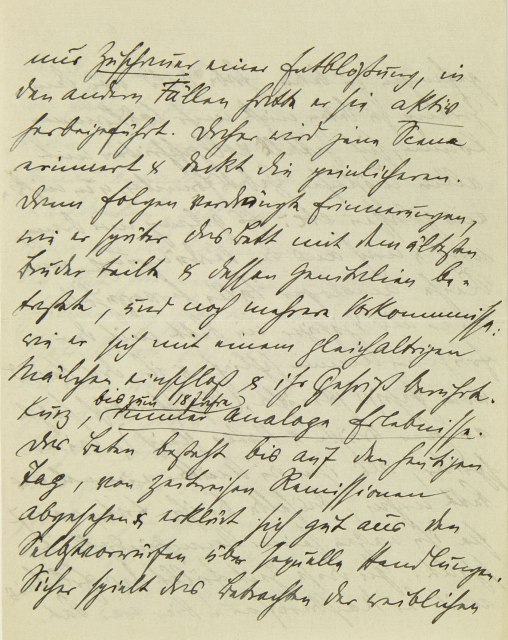 nur Zuschauer einer Entblößung, in
den andern Fällen hatte er sie aktiv
herbeigeführt. Daher wird jene Scene
erinnert & deckt die peinlicheren.
Dann folgen verdrängte Erinnerungen,
wie er später das Bett mit dem ältesten
Bruder teilte & dessen Genitalien be-
tastete, und noch mehrere Vorkommnisse:
wie er sich mit einem gleichaltrigen
Mädchen einschloß & ihr Gesäß berührte.
bis zum 18 Jahre
Kurz, analoge Erlebnisse.
Das Beten besteht bis auf den heutigen
Tag, von zeitweisen Remissionen
abgesehen & erklärt sich gut aus den
Selbstvorwürfen über sexuelle Handlungen.
Sicher spielt das Betrachten der weiblichen